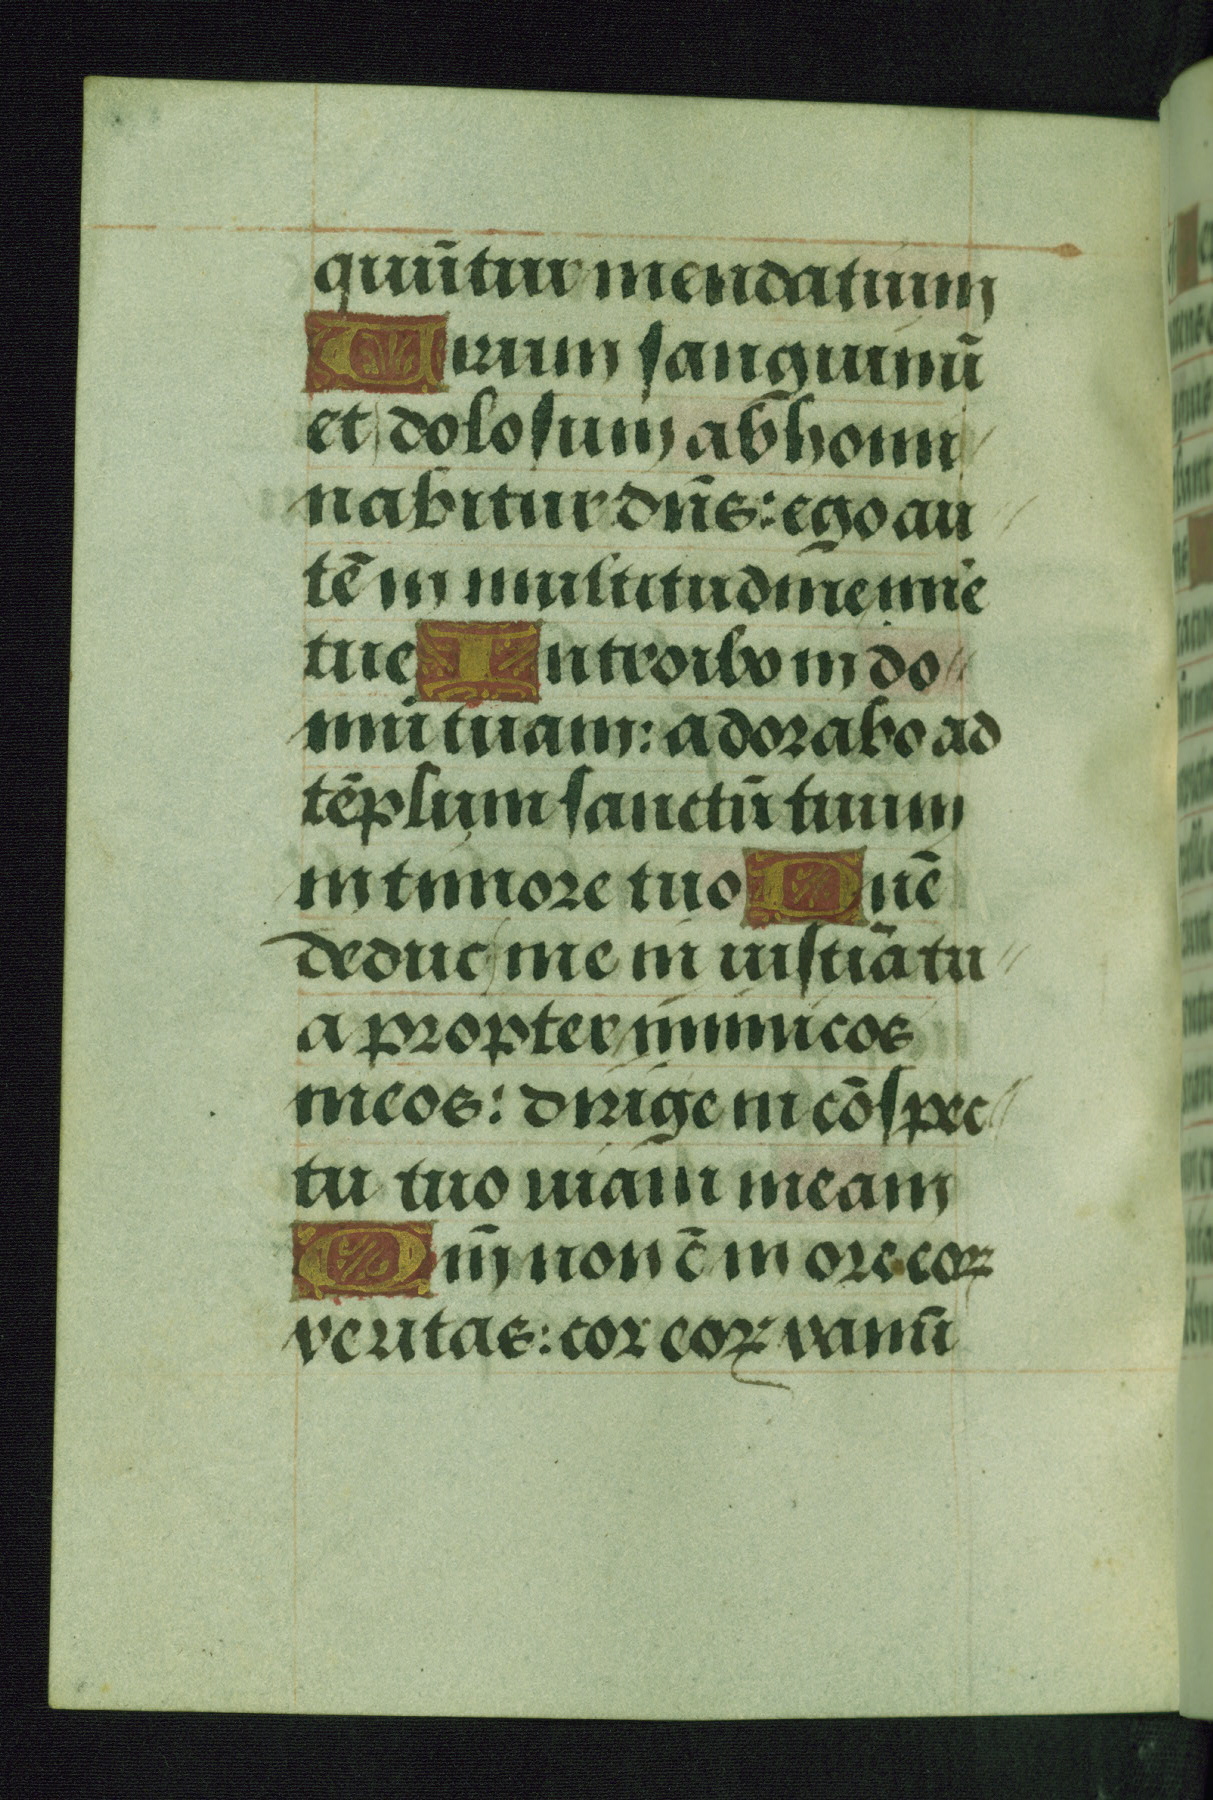 quūtur mendatium
Virum sanguinū
et dolosum abhomi
nabitur dn̄s: ego au
tē in multitudine mi͞e
tue Introibo in do
mū tuam: adorabo ad
tēplum sanctū tuum
in timore tuo Dn̄e
deduc me in iustiā tu
a propter inimicos
meos: dirige in cōspec
tu tuo uiam meam
Qm̄ non ē in ore eoꝝ
veritas: cor eoꝝ vanū